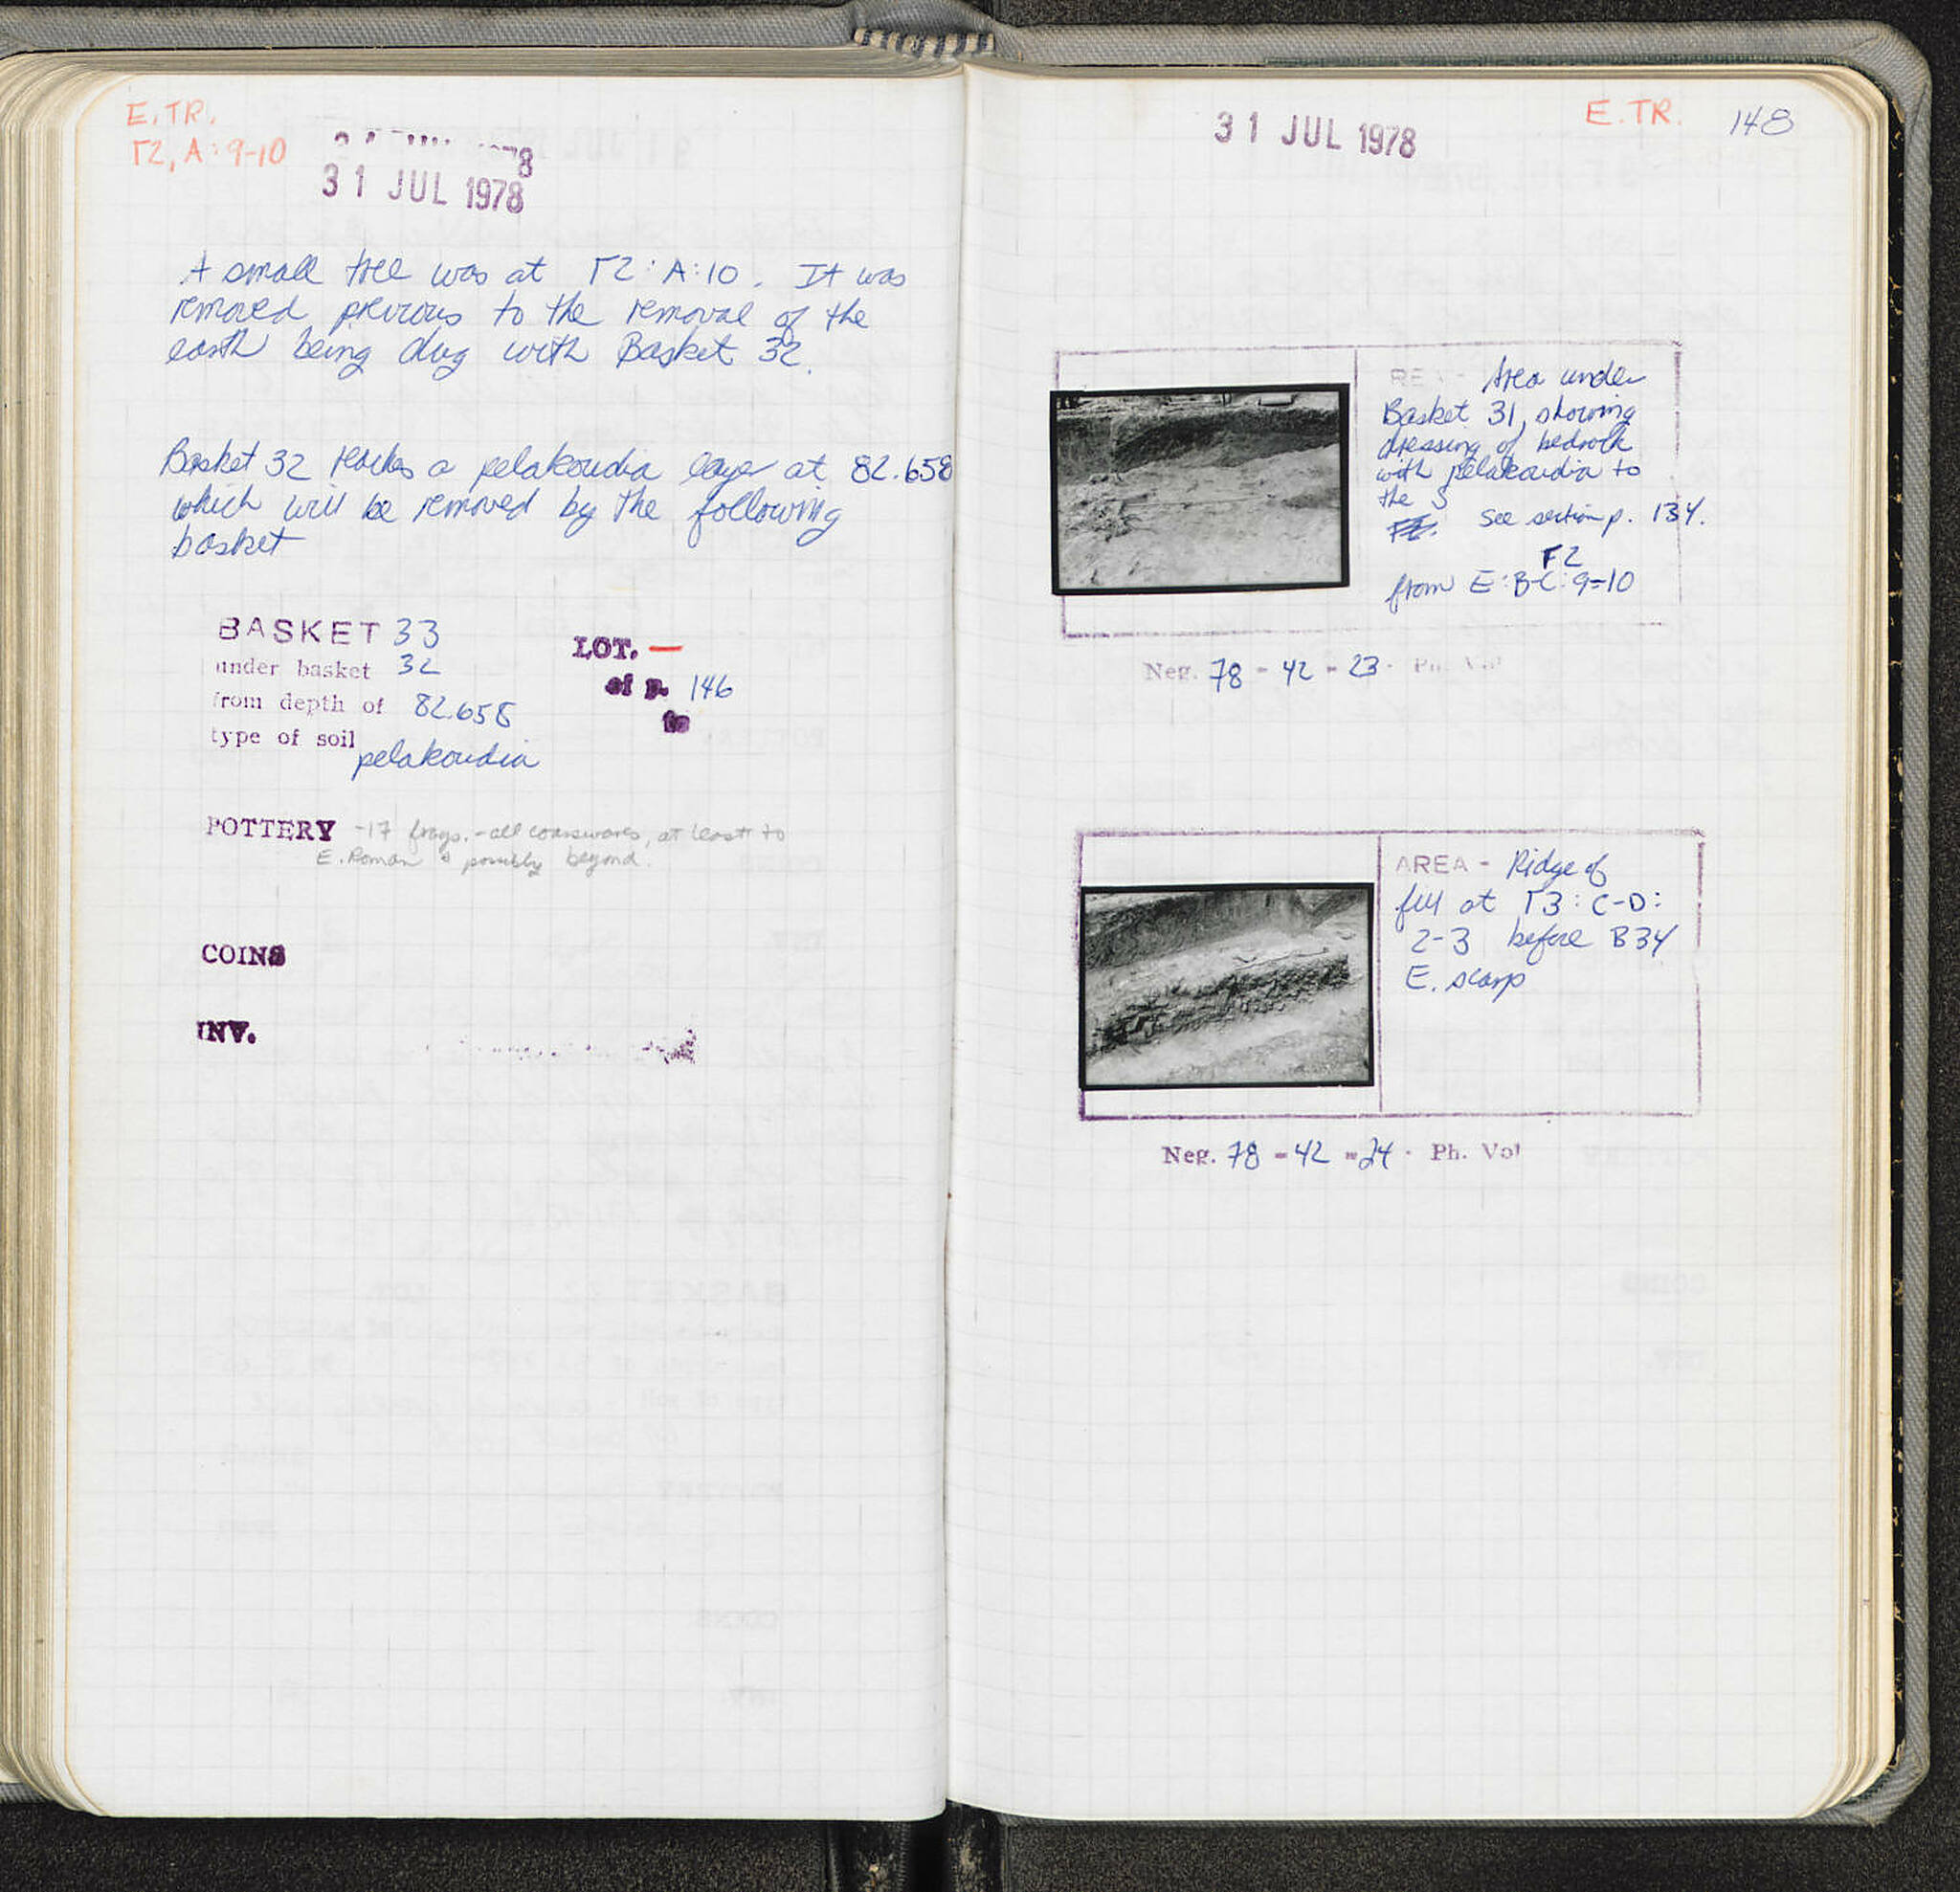 E.TR.
Γ2, A:9-10
31 JUL 1978
A small tree was at Γ2:A:10. It was
removed previous to the removal of the
earth being dug with Basket 32.
Basket 32 reaches a pelakoudia layer at 82.658
which will be removed by the following
basket
BASKET 33
LOT. —
under basket 32
cf p. 146
from depth of 82.658
to
type of soil
pelakoudia
POTTERY -17 frags. - all coarsewares, at least to
E. Roman & possibly beyond.
COINS
INV.
31 JUL 1978
E.TR. 148
Area under
Basket 31, showing
dressing of bedrock
with pelakoudia to
the S
See section p. 134.
Γ2
from E:B-C:9-10
Neg. 78-42-23. Ph. Vol
AREA - Ridge of
fill at Γ3:C-D:
2-3 before B34
E. scarp
Neg. 78-42-24. Ph. Vol